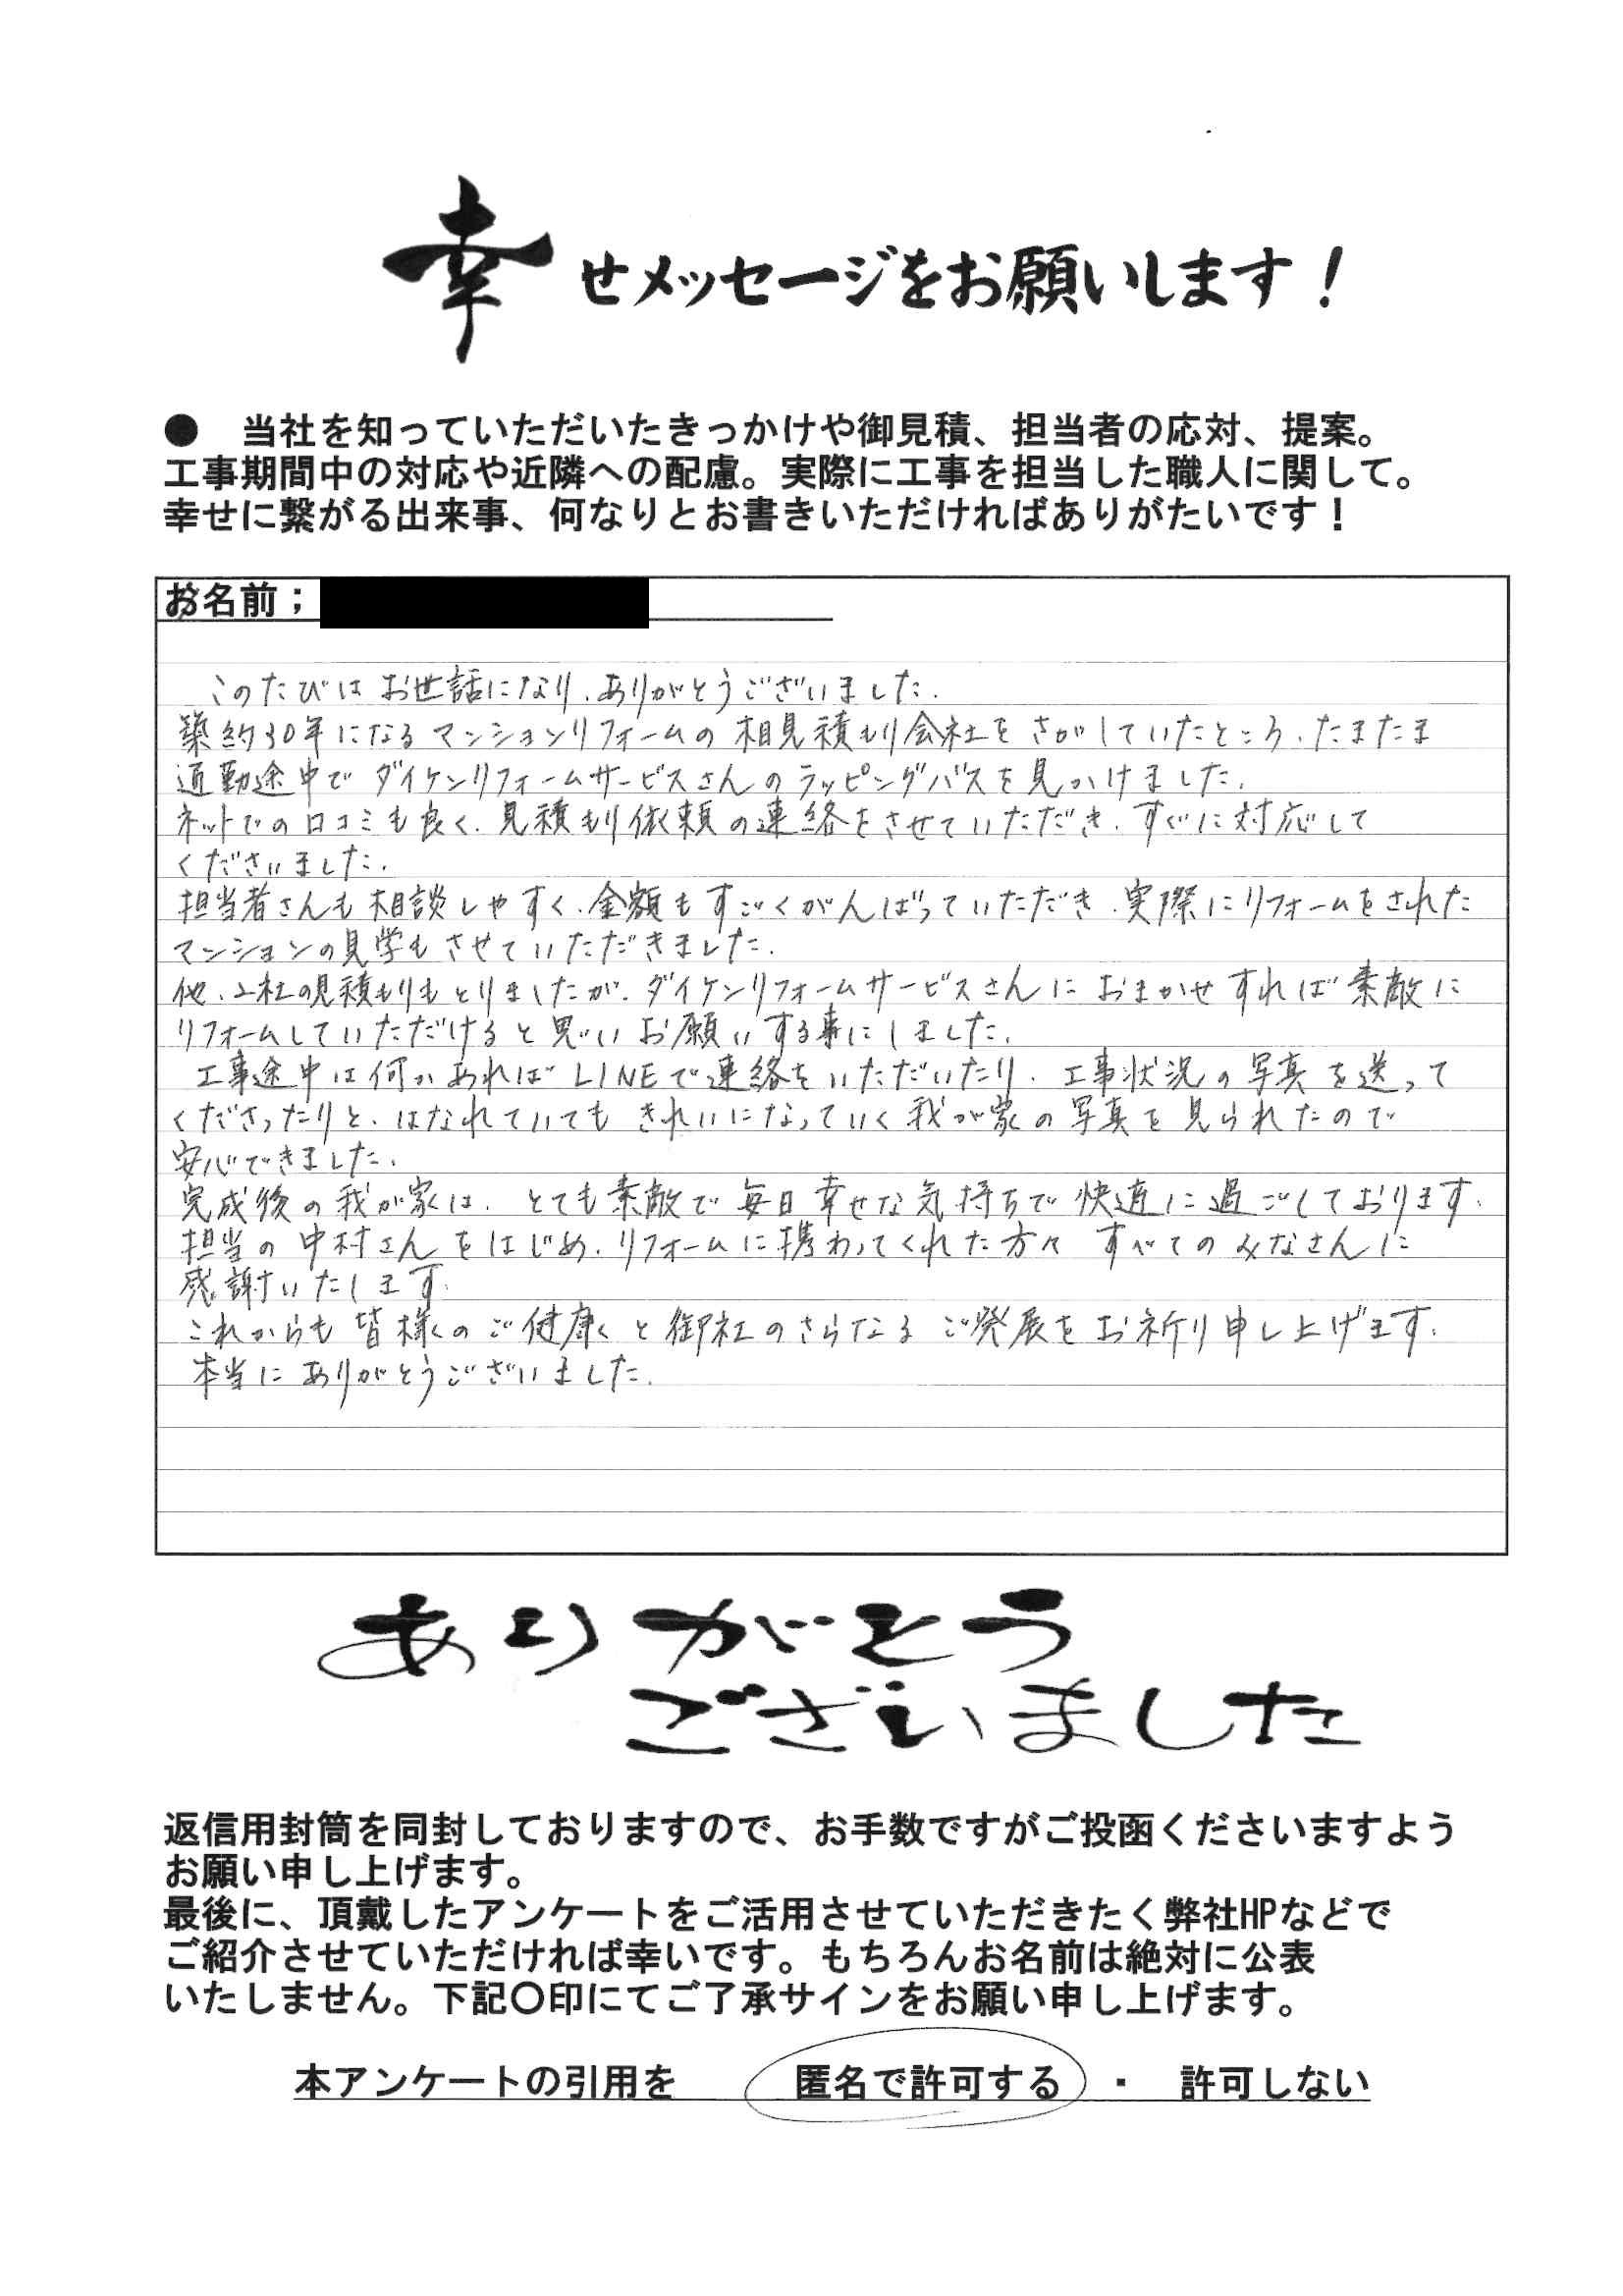 幸せメッセージをお願いします！
●　当社を知っていただいたきっかけや御見積、担当者の応対、提案。
工事期間中の対応や近隣への配慮。実際に工事を担当した職人に関して。
幸せに繋がる出来事、何なりとお書きいただければありがたいです！
お名前；
このたびはお世話になり、ありがとうございました。
築約30年になるマンションリフォームの相見積もり会社をさがしていたところ、たまたま
通勤途中でダイケンリフォームサービスさんのラッピングバスを見かけました。
ネットでの口コミも良く、見積もり依頼の連絡をさせていただき、すぐに対応して
くださいました。
担当者さんも相談しやすく、金額もすごくがんばっていただき、実際にリフォームをされた
マンションの見学もさせていただきました。
他、2社の見積もりもとりましたが、ダイケンリフォームサービスさんにおまかせすれば素敵に
リフォームしていただけると思いお願いする事にしました。
工事途中は何かあればLINEで連絡をいただいたり、工事状況の写真を送って
くださったりと、はなれていてもきれいになっていく我が家の写真を見られたので
安心できました。
完成後の我が家は、とても素敵で毎日幸せな気持ちで快適に過ごしております。
担当の中村さんをはじめ、リフォームに携わってくれた方々すべてのみなさんに
感謝いたします。
これからも皆様のご健康と御社のさらなるご発展をお祈り申し上げます。
本当にありがとうございました。
ありがとう
ございました
返信用封筒を同封しておりますので、お手数ですがご投函くださいますよう
お願い申し上げます。
最後に、頂戴したアンケートをご活用させていただきたく弊社HPなどで
ご紹介させていただければ幸いです。もちろんお名前は絶対に公表
いたしません。下記〇印にてご了承サインをお願い申し上げます。
本アンケートの引用を　匿名で許可する　・　許可しない